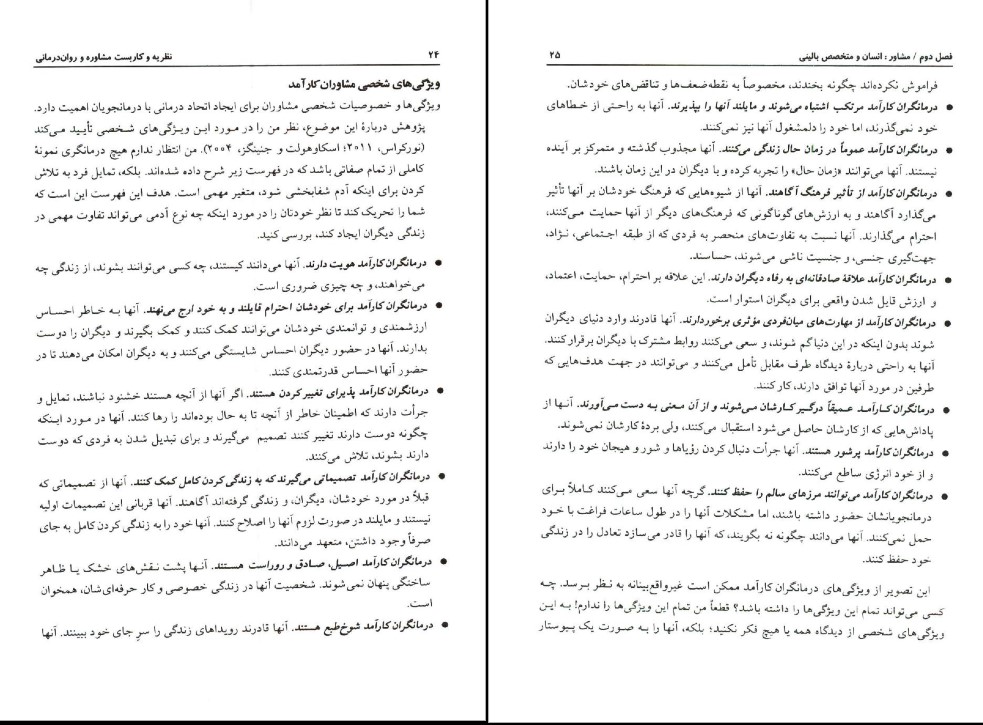 ۲۴ نظریه و کاربست مشاوره و روان‌درمانی
ویژگی‌های شخصی مشاوران کارآمد
ویژگی‌ها و خصوصیات شخصی مشاوران برای ایجاد اتحاد درمانی با درمانجویان اهمیت دارد.
پژوهش دربارهٔ این موضوع، نظر من را در مورد این ویژگی‌های شخصی تأیید می‌کند
(نورکراس، ۲۰۱۱؛ اسکاوهولت و جنینگز، ۲۰۰۴). من انتظار ندارم هیچ درمانگری نمونهٔ
کاملی از تمام صفاتی باشد که در فهرست زیر شرح داده شده‌اند. بلکه، تمایل فرد به تلاش
کردن برای اینکه آدم شفابخشی شود، متغیر مهمی است. هدف این فهرست این است که
شما را تحریک کند تا نظر خودتان را در مورد اینکه چه نوع آدمی می‌تواند تفاوت مهمی در
زندگی دیگران ایجاد کند، بررسی کنید.
● درمانگران کارآمد هویت دارند. آنها می‌دانند کیستند، چه کسی می‌توانند بشوند، از زندگی چه
می‌خواهند، و چه چیزی ضروری است.
● درمانگران کارآمد برای خودشان احترام قایلند و به خود ارج می‌نهند. آنها به خاطر احساس
ارزشمندی و توانمندی خودشان می‌توانند کمک کنند و کمک بگیرند و دیگران را دوست
بدارند. آنها در حضور دیگران احساس شایستگی می‌کنند و به دیگران امکان می‌دهند تا در
حضور آنها احساس قدرتمندی کنند.
● درمانگران کارآمد پذیرای تغییر کردن هستند. اگر آنها از آنچه هستند خشنود نباشند، تمایل و
جرأت دارند که اطمینان خاطر از آنچه تا به حال بوده‌اند را رها کنند. آنها در مورد اینکه
چگونه دوست دارند تغییر کنند تصمیم می‌گیرند و برای تبدیل شدن به فردی که دوست
دارند بشوند، تلاش می‌کنند.
● درمانگران کارآمد تصمیماتی می‌گیرند که به زندگی کردن کامل کمک کنند. آنها از تصمیماتی که
قبلاً در مورد خودشان، دیگران، و زندگی گرفته‌اند آگاهند. آنها قربانی این تصمیمات اولیه
نیستند و مایلند در صورت لزوم آنها را اصلاح کنند. آنها خود را به زندگی کردن کامل به جای
صرفاً وجود داشتن، متعهد می‌دانند.
● درمانگران کارآمد اصیل، صادق و روراست هستند. آنها پشت نقش‌های خشک یا ظاهر
ساختگی پنهان نمی‌شوند. شخصیت آنها در زندگی خصوصی و کار حرفه‌ای‌شان، همخوان
است.
● درمانگران کارآمد شوخ‌طبع هستند. آنها قادرند رویداهای زندگی را سر جای خود ببینند. آنها
فصل دوم / مشاور : انسان و متخصص بالینی ۲۵
فراموش نکرده‌اند چگونه بخندند، مخصوصاً به نقطه‌ضعف‌ها و تناقض‌های خودشان.
● درمانگران کارآمد مرتکب اشتباه می‌شوند و مایلند آنها را بپذیرند. آنها به راحتی از خطاهای
خود نمی‌گذرند، اما خود را دلمشغول آنها نیز نمی‌کنند.
● درمانگران کارآمد عموماً در زمان حال زندگی می‌کنند. آنها مجذوب گذشته و متمرکز بر آینده
نیستند. آنها می‌توانند «زمان حال» را تجربه کرده و با دیگران در این زمان باشند.
● درمانگران کارآمد از تأثیر فرهنگ آگاهند. آنها از شیوه‌هایی که فرهنگ خودشان بر آنها تأثیر
می‌گذارد آگاهند و به ارزش‌های گوناگونی که فرهنگ‌های دیگر از آنها حمایت می‌کنند،
احترام می‌گذارند. آنها نسبت به تفاوت‌های منحصر به فردی که از طبقه اجتماعی، نژاد،
جهت‌گیری جنسی، و جنسیت ناشی می‌شوند، حساسند.
● درمانگران کارآمد علاقهٔ صادقانه‌ای به رفاه دیگران دارند. این علاقه بر احترام، حمایت، اعتماد،
و ارزش قایل شدن واقعی برای دیگران استوار است.
● درمانگران کارآمد از مهارت‌های میان‌فردی مؤثری برخوردارند. آنها قادرند وارد دنیای دیگران
شوند بدون اینکه در این دنیا گم شوند، و سعی می‌کنند روابط مشترک با دیگران برقرار کنند.
آنها به راحتی دربارهٔ دیدگاه طرف مقابل تأمل می‌کنند و می‌توانند در جهت هدف‌هایی که
طرفین در مورد آنها توافق دارند، کار کنند.
● درمانگران کارآمد عمیقاً درگیر کارشان می‌شوند و از آن معنی به دست می‌آورند. آنها از
پاداش‌هایی که از کارشان حاصل می‌شود استقبال می‌کنند، ولی بردهٔ کارشان نمی‌شوند.
● درمانگران کارآمد پرشور هستند. آنها جرأت دنبال کردن رؤیاها و شور و هیجان خود را دارند
و از خود انرژی ساطع می‌کنند.
● درمانگران کارآمد می‌توانند مرزهای سالم را حفظ کنند. گرچه آنها سعی می‌کنند کاملاً برای
درمانجویانشان حضور داشته باشند، اما مشکلات آنها را در طول ساعات فراغت با خود
حمل نمی‌کنند. آنها می‌دانند چگونه نه بگویند، که آنها را قادر می‌سازد تعادل را در زندگی
خود حفظ کنند.
این تصویر از ویژگی‌های درمانگران کارآمد ممکن است غیرواقع‌بینانه به نظر برسد. چه
کسی می‌تواند تمام این ویژگی‌ها را داشته باشد؟ قطعاً من تمام این ویژگی‌ها را ندارم! به این
ویژگی‌های شخصی از دیدگاه همه یا هیچ فکر نکنید؛ بلکه، آنها را به صورت یک پیوستار